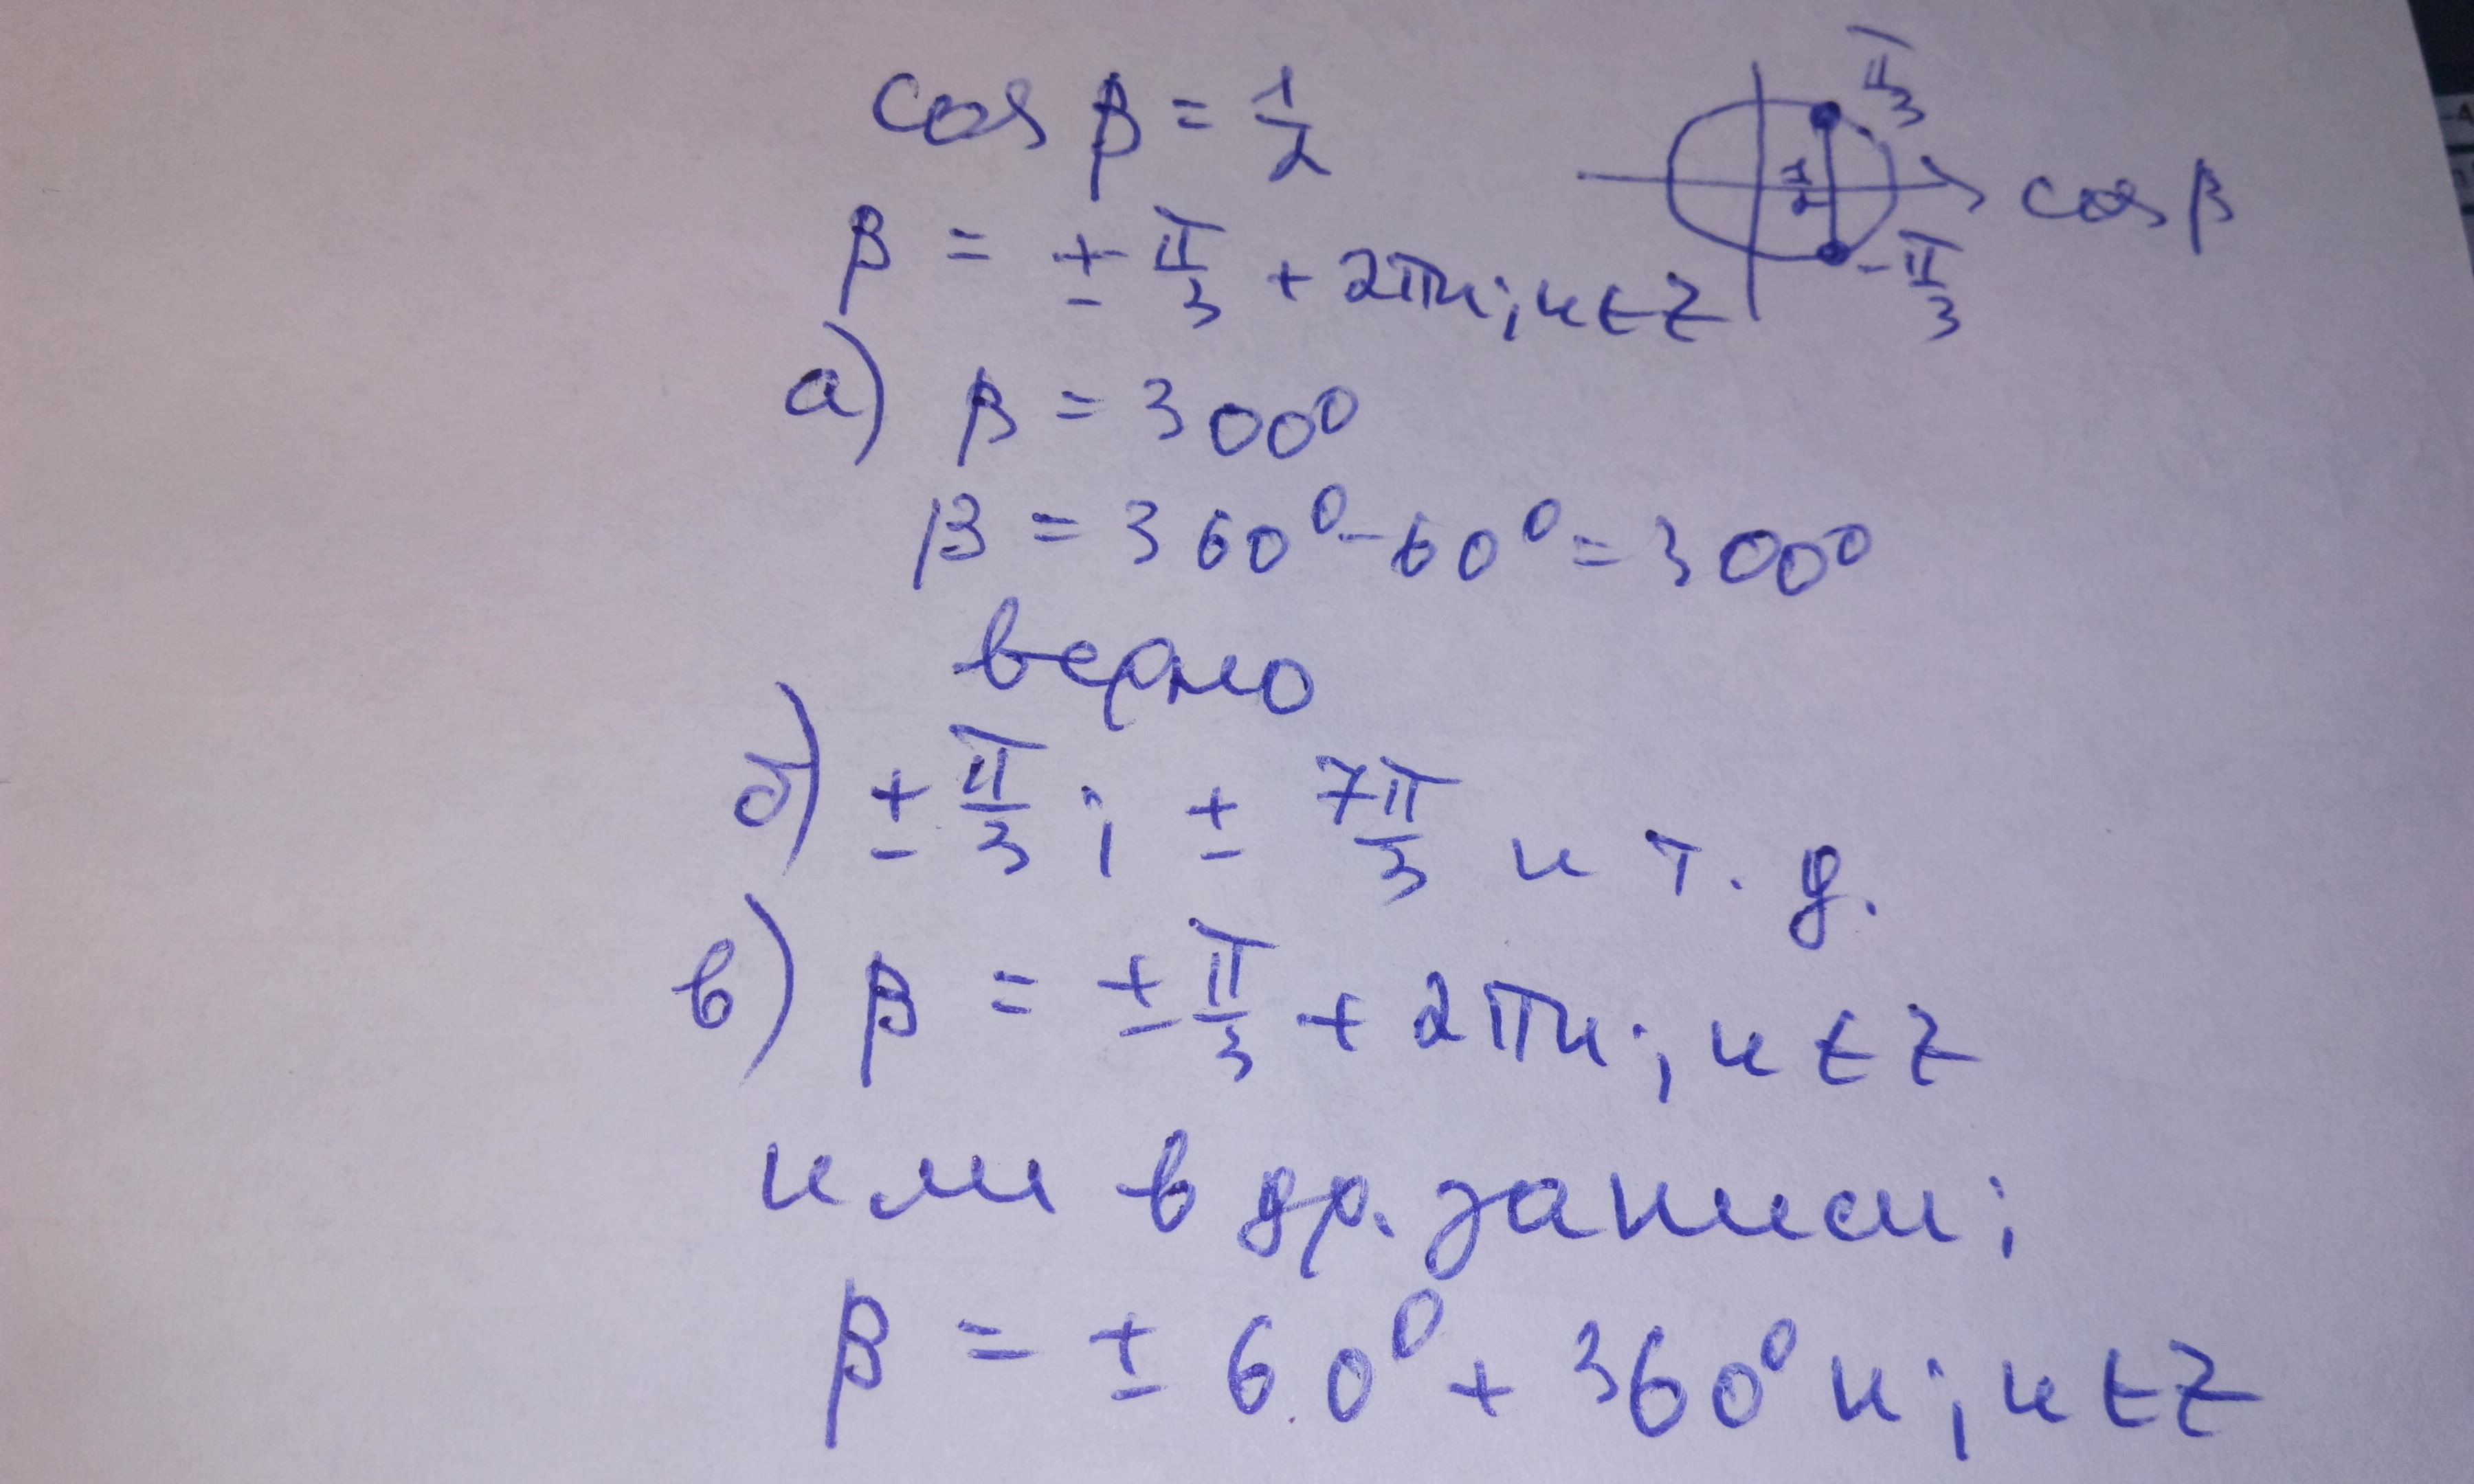 cos β = 1/2
π/3
1/2
cos β
-π/3
β = ± π/3 + 2πn; n ∈ Z
а) β = 300°
β = 360° - 60° = 300°
верно
б) ± π/3; ± 7π/3 и т. д.
в) β = ± π/3 + 2πn; n ∈ Z
или в др. записи:
β = ± 60° + 360° n; n ∈ Z